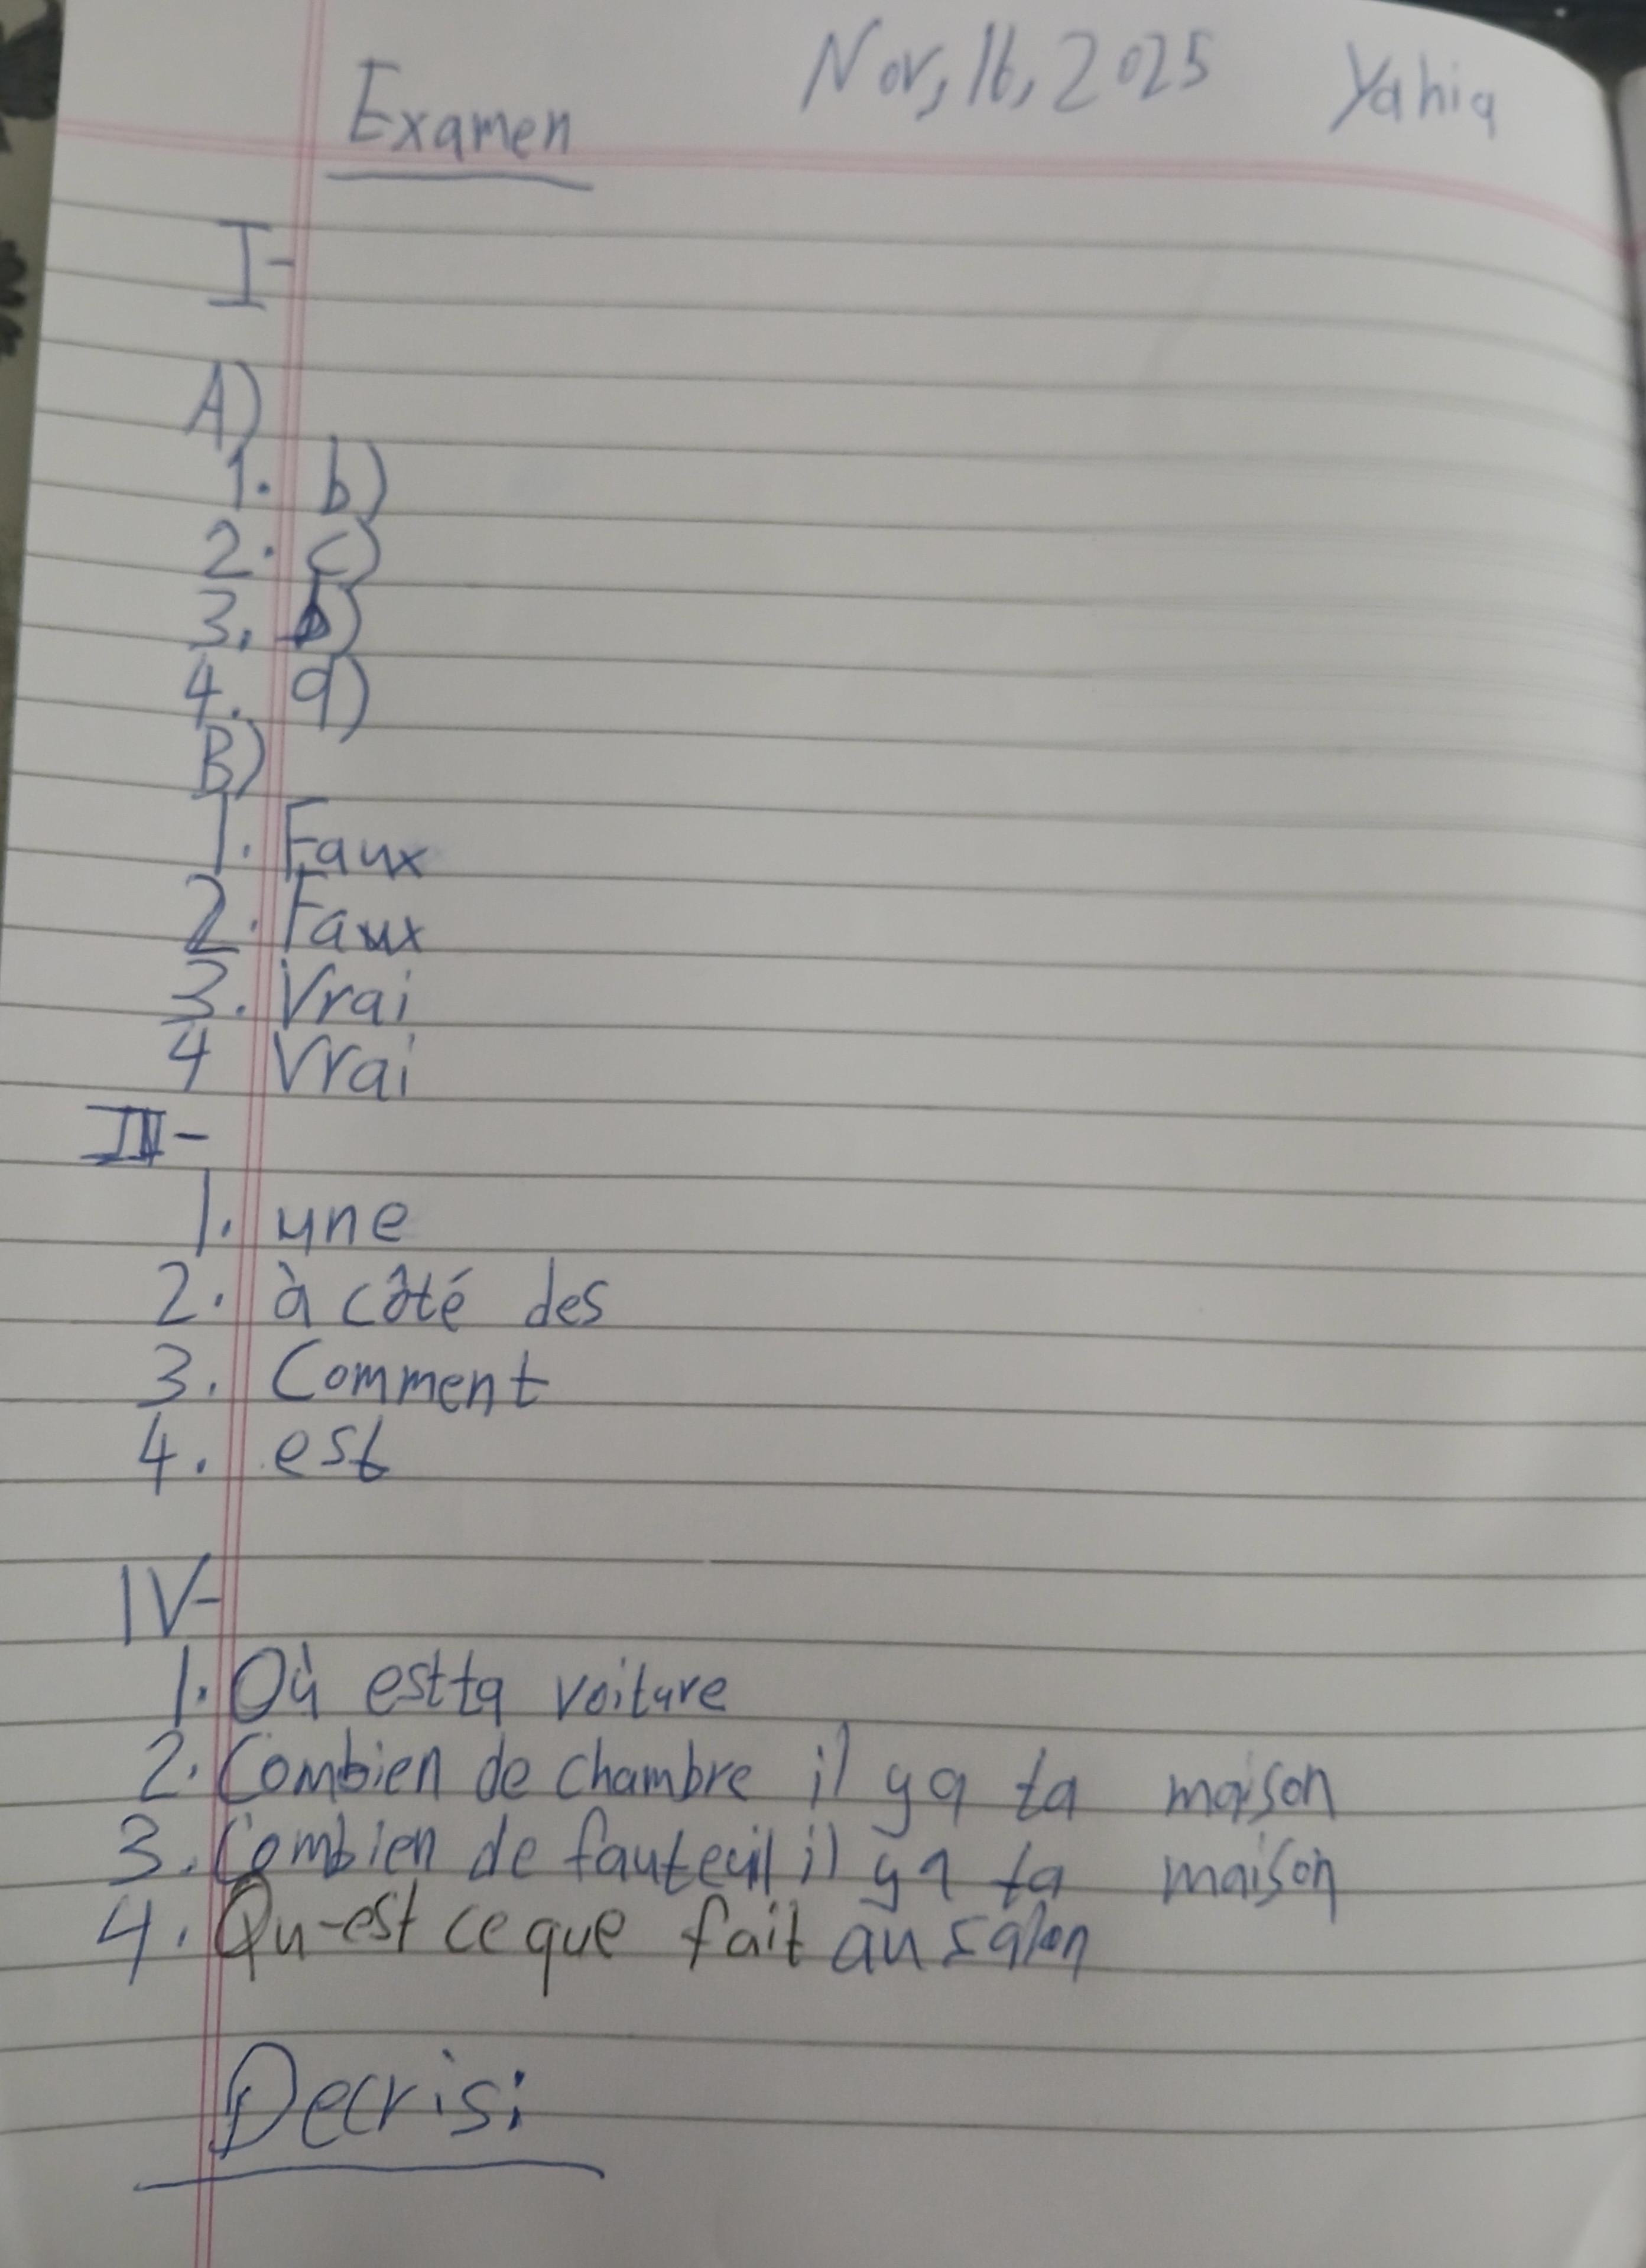 Examen Nov, 16, 2025 Yahia
I-
A)
1. b)
2. c)
3. b)
4. a)
B)
1. Faux
2. Faux
3. Vrai
4 Vrai
III-
1. une
2. à côté des
3. Comment
4. est
IV-
1. Où est ta voiture
2. Combien de chambre il y a ta maison
3. Combien de fauteuil il y a ta maison
4. Qu-est ce que fait au salon
Decris: